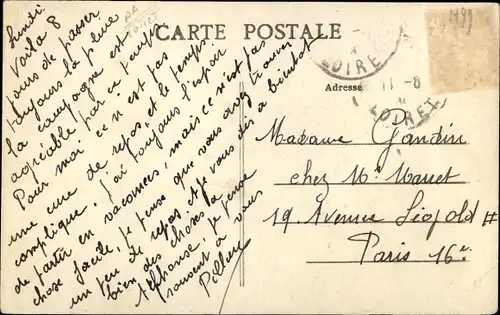 Lundi.
Voilà 8
jours de passer
toujours la pluie
la campagne est
agréable par ce temps
Pour moi ce n'est pas
une cure de repos, et le temps
complique, j'ai toujours l'espoir
de partir en vacances, mais ce n'est pas
chose facile, je pense que vous avez trouver
un peu de repos et je vous dis à bientôt
bien des choses à
Alphonse, je pense
souvent à vous
CARTE POSTALE
LOIRET
Adresse
11-8
LOIRET
Madame Gandin
chez Mr Marcet
19, Avenue Léopold II
Paris 16e
1499